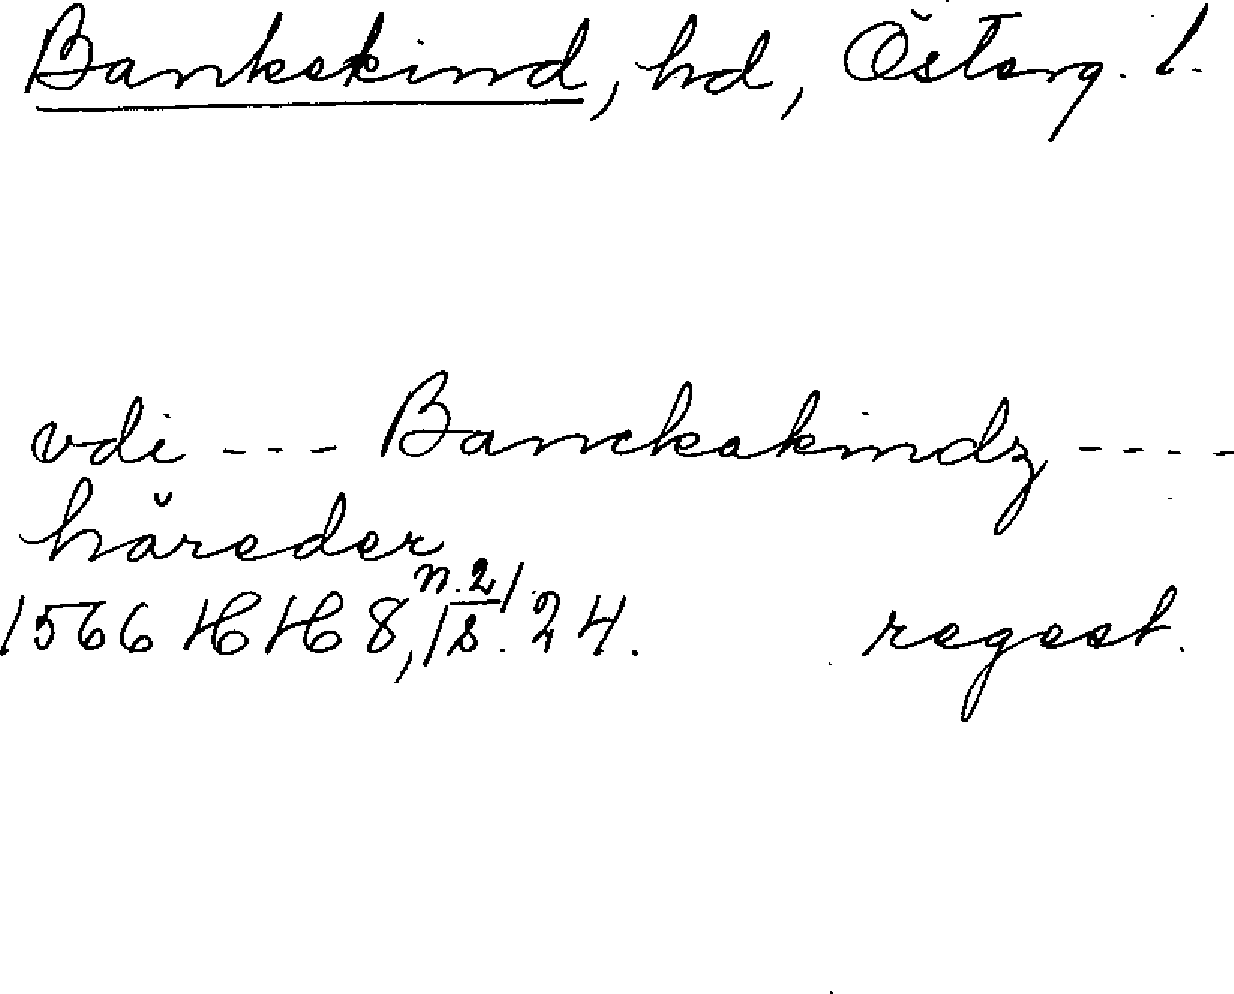 Bankekind, hd, Österg. l.
vdi --- Banckakindz ----
häreder
1566 HH 8, n. 2 / s. 24. regest.